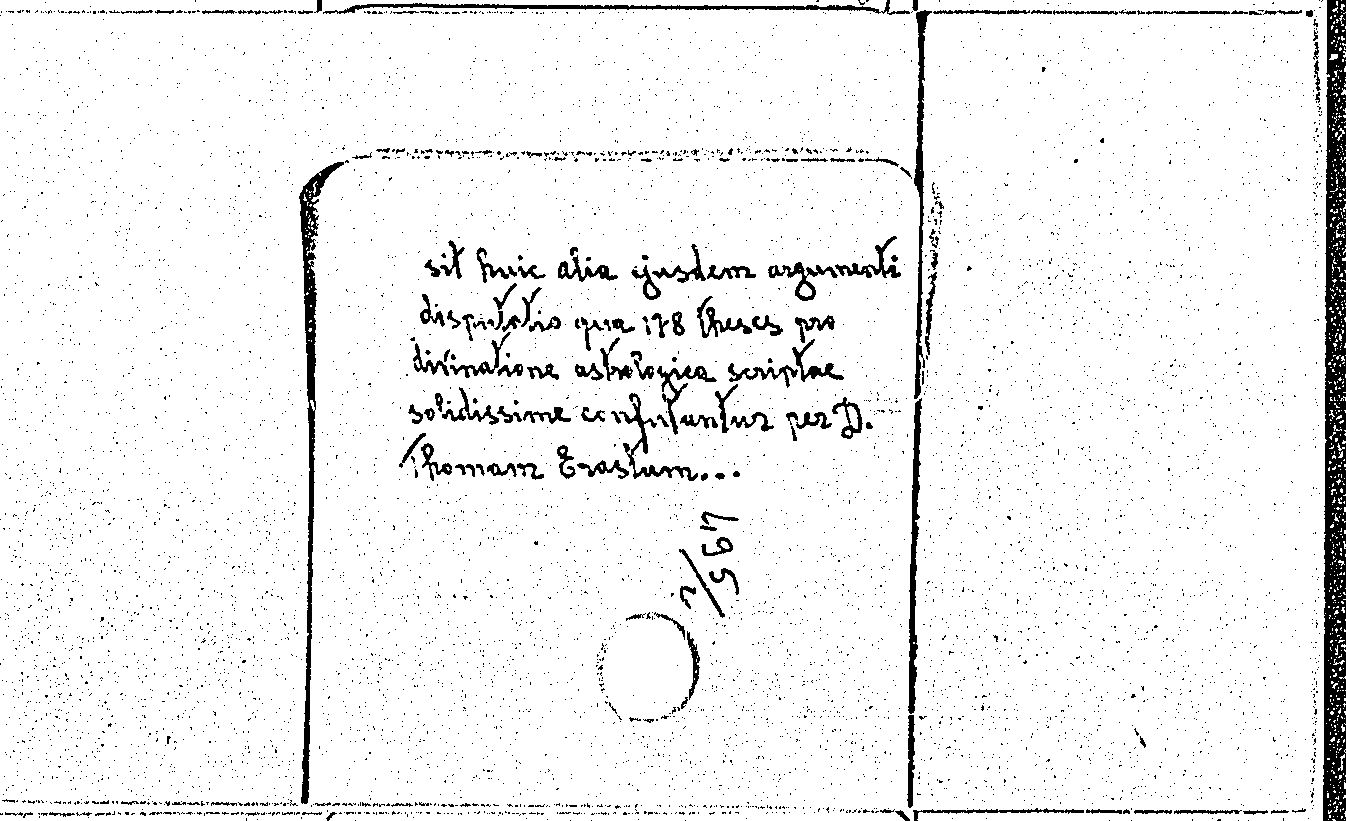 sit huic alia ejusdem argumenti
disputatio qua 178 theses pro
divinatione astrologica scriptae
solidissime confutantur per D.
Thomam Erastum...